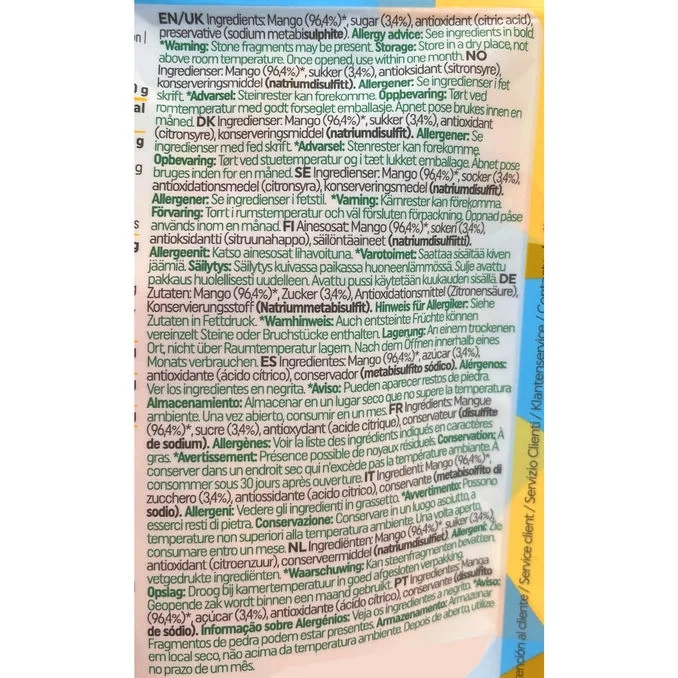 EN/UK Ingredients: Mango (96,4%)*, sugar (3,4%), antioxidant (citric acid),
preservative (sodium metabisulphite). Allergy advice: See ingredients in bold.
*Warning: Stone fragments may be present. Storage: Store in a dry place, not
above room temperature. Once opened, use within one month. NO
Ingredienser: Mango (96,4%)*, sukker (3,4%), antioksidant (sitronsyre),
konserveringsmiddel (natriumdisulfitt). Allergener: Se ingredienser i fet
skrift. *Advarsel: Steinrester kan forekomme. Oppbevaring: Tørt ved
romtemperatur med godt forseglet emballasje. Åpnet pose brukes innen en
måned. DK Ingredienser: Mango (96,4%)*, sukker (3,4%), antioxidant
(citronsyre), konserveringsmiddel (natriumdisulfit). Allergener: Se
ingredienser med fed skrift. *Advarsel: Stenrester kan forekomme.
Opbevaring: Tørt ved stuetemperatur og i tæt lukket emballage. Åbnet pose
bruges inden for en måned. SE Ingredienser: Mango (96,4%)*, socker (3,4%),
antioxidationsmedel (citronsyra), konserveringsmedel (natriumdisulfit).
Allergener: Se ingredienser i fetstil. *Varning: Kärnrester kan förekomma.
Förvaring: Torrt i rumstemperatur och väl försluten förpackning. Öppnad påse
används inom en månad. FI Ainesosat: Mango (96,4%)*, sokeri (3,4%),
antioksidantti (sitruunahappo), säilöntäaineet (natriumdisulfiitti).
Allergeenit: Katso ainesosat lihavoituna. *Varotoimet: Saattaa sisältää kiven
jäämiä. Säilytys: Säilytys kuivassa paikassa huoneenlämmössä. Sulje avattu
pakkaus huolellisesti uudelleen. Avattu pussi käytetään kuukauden sisällä. DE
Zutaten: Mango (96,4%)*, Zucker (3,4%), Antioxidationsmittel (Zitronensäure),
Konservierungsstoff (Natriummetabisulfit). Hinweis für Allergiker: Siehe
Zutaten in Fettdruck. *Warnhinweis: Auch entsteinte Früchte können
vereinzelt Steine oder Bruchstücke enthalten. Lagerung: An einem trockenen
Ort, nicht über Raumtemperatur lagern. Nach dem Öffnen innerhalb eines
Monats verbrauchen. ES Ingredientes: Mango (96,4%)*, azúcar (3,4%),
antioxidante (ácido cítrico), conservador (metabisulfito sódico). Alérgenos:
Ver los ingredientes en negrita. *Aviso: Pueden aparecer restos de piedra.
Almacenamiento: Almacenar en un lugar seco que no supere la temperatura
ambiente. Una vez abierto, consumir en un mes. FR Ingrédients: Mangue
(96,4%)*, sucre (3,4%), antioxydant (acide citrique), conservateur (disulfite
de sodium). Allergènes: Voir la liste des ingrédients indiqués en caractères
gras. *Avertissement: Présence possible de noyaux résiduels. Conservation: À
conserver dans un endroit sec qui n'excède pas la température ambiante. À
consommer sous 30 jours après ouverture. IT Ingredienti: Mango (96,4%)*,
zucchero (3,4%), antiossidante (acido citrico), conservante (metabisolfito di
sodio). Allergeni: Vedere gli ingredienti in grassetto. *Avvertimento: Possono
esserci resti di pietra. Conservazione: Conservare in un luogo asciutto, a
temperature non superiori alla temperatura ambiente. Una volta aperto,
consumare entro un mese. NL Ingrediënten: Mango (96,4%)*, suiker (3,4%),
antioxidant (citroenzuur), conserveermiddel (natriumdisulfiet). Allergeni: Zie
vetgedrukte ingrediënten. *Waarschuwing: Kan steenfragmenten bevatten.
Opslag: Droog bij kamertemperatuur in goed afgesloten verpakking.
Geopende zak wordt binnen een maand gebruikt. PT Ingredientes: Manga
(96,4%)*, açúcar (3,4%), antioxidante (ácido cítrico), conservante (dissulfito
de sódio). Informação sobre Alergénios: Veja os ingredientes a negrito. *Aviso:
Fragmentos de pedra podem estar presentes. Armazenamento: Armazenar
em local seco, não acima da temperatura ambiente. Depois de aberto, utilize
no prazo de um mês.
ención al cliente / Service client / Servizio Clienti / Klantenservice /